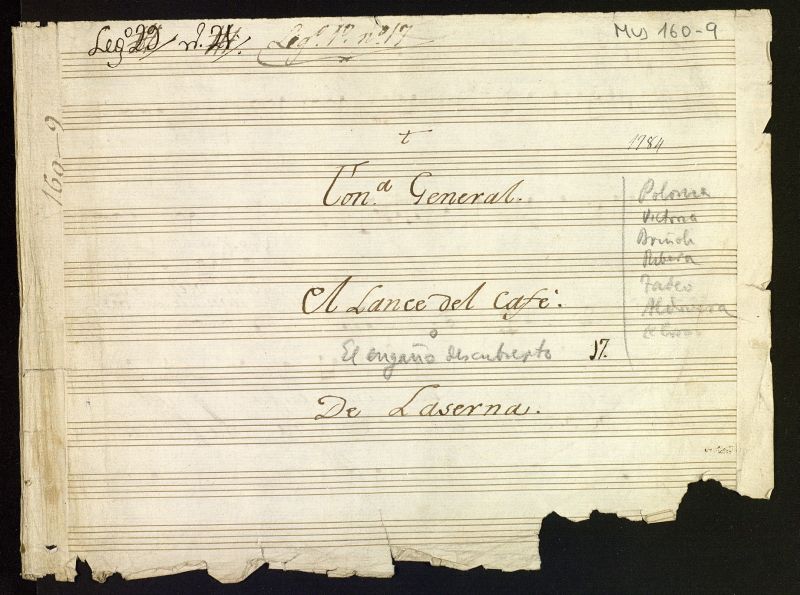 Leg.º 29 n.º 21. Leg.º 1º nº 17
Mus 160-9
160-9
1784
Ton.ª General.
El Lance del Café.
o
El engaño descubierto 17.
De Laserna.
Polonia
Victoria
Briñoli
Ribera
Tadeo
Aldovera